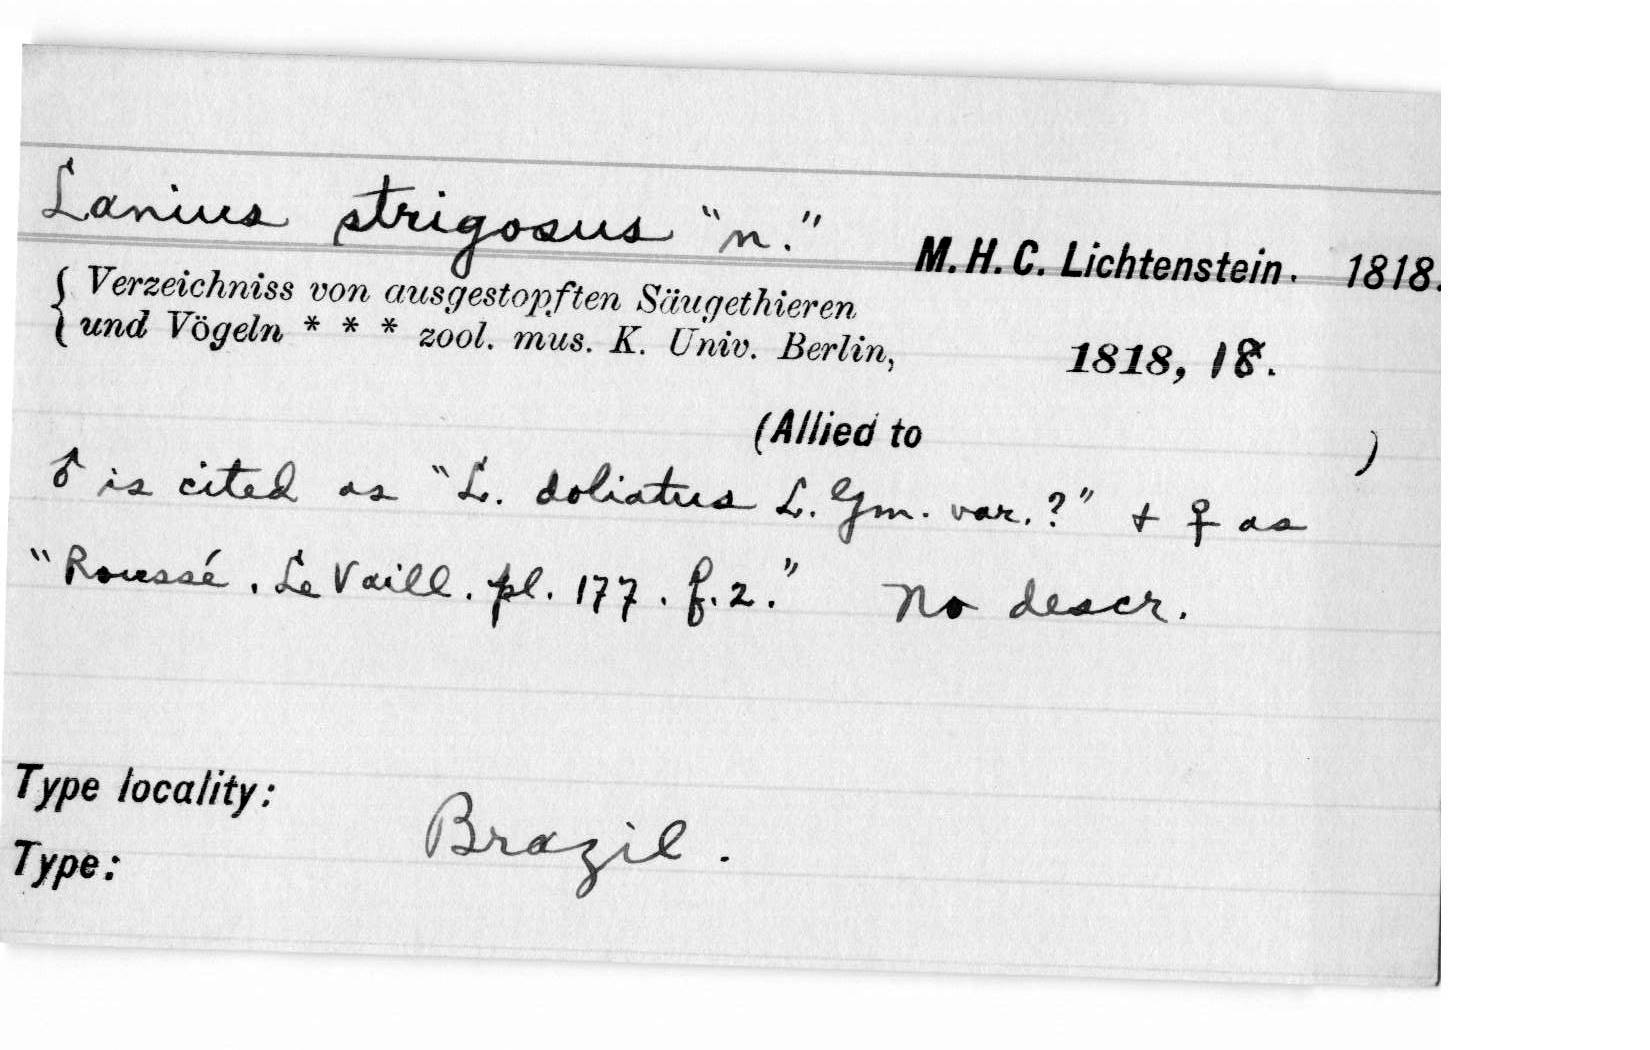 Lanius strigosus "n." M. H. C. Lichtenstein. 1818.
{ Verzeichniss von ausgestopften Säugethieren
und Vögeln * * * zool. mus. K. Univ. Berlin, 1818, 18.
(Allied to )
♂ is cited as "L. doliatus L. Gm. var.?" + ♀ as
"Roussé. Le Vaill. pl. 177. f. 2." No descr.
Type locality: Brazil.
Type: